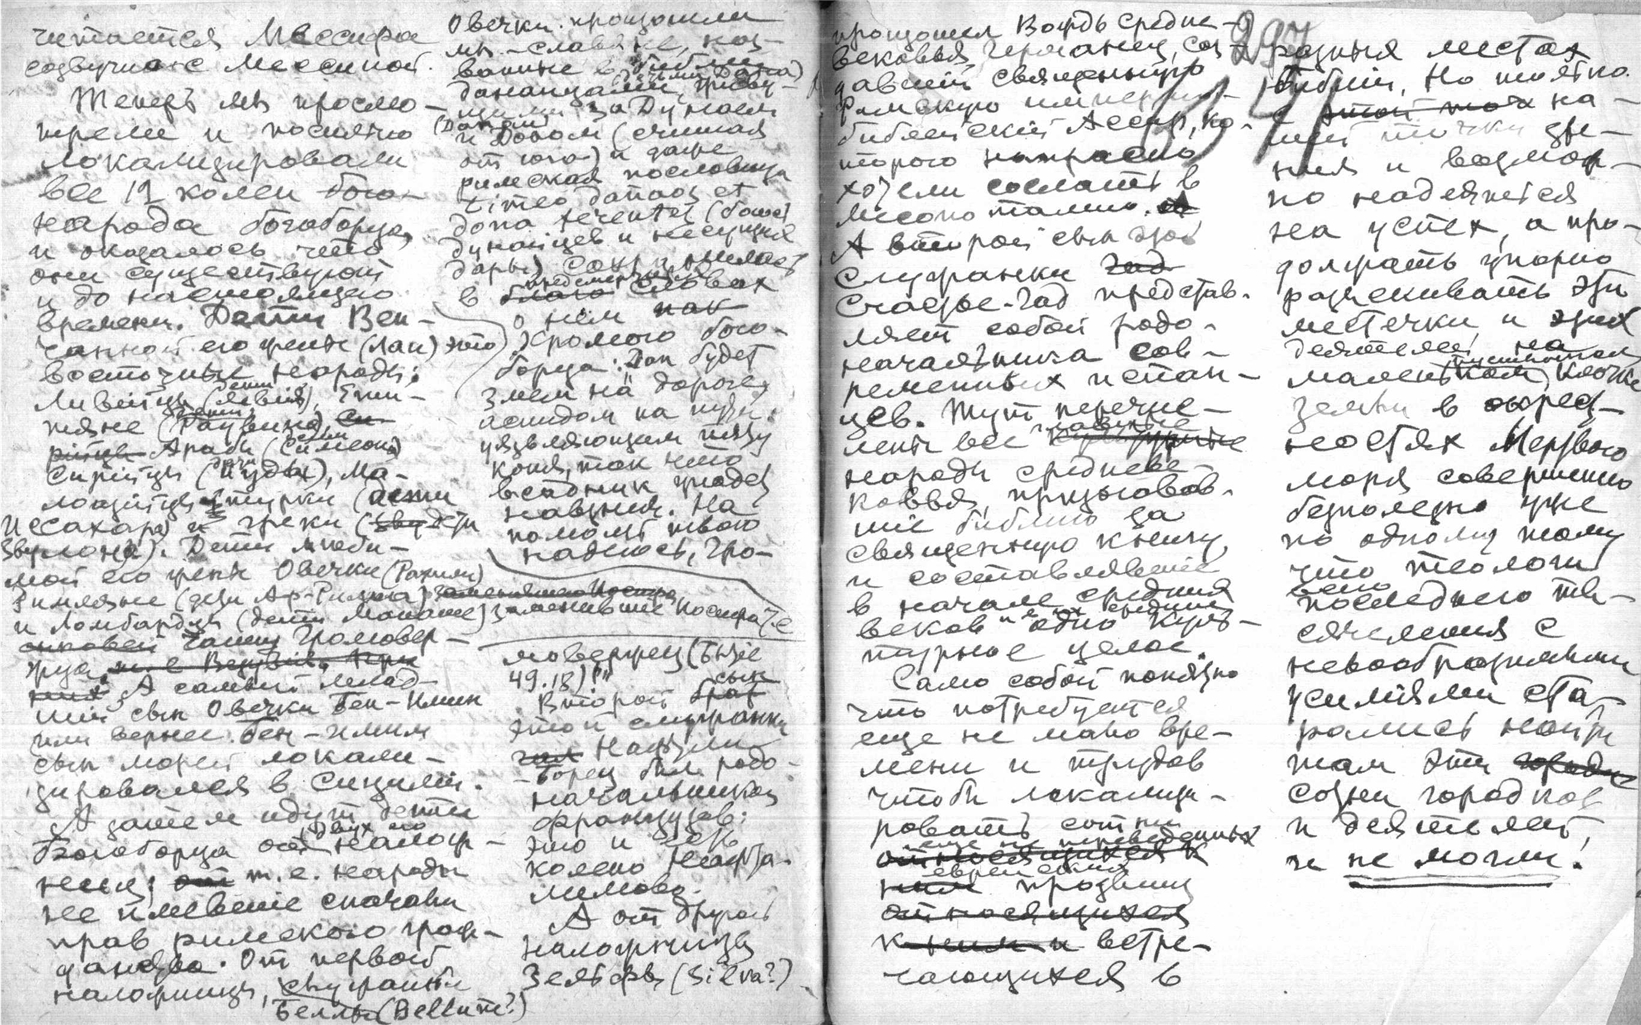 читается Мессифа
созвучная с Мессиной.
Теперь мы просмо-
трели и посильно
локализировали
все 12 колен бого-
народа богоборца,
и оказалось что
они существуют
и до настоящего
времени. Дети Вен-
чанной его жены (Лаи) это
восточные народы:
Ливийцы (дети Левия), Егип-
тяне (дети Раувина)
Арабы (дети Симеона)
Сирийцы (дети Иуды), Ма-
лоазийцы турки (дети
Иссахара) и греки (дети
Звулона). Дети люби-
мой его жены Овечки (Рахили)
Римляне (дети Аф-Рима)
и Ломбардцы (дети Манаше) заменившие Иосифа т.е
Громовер-
жца
А самый млад-
ший сын Овечки Бен-Имин
или вернее Бен-Имим
сын морей локали-
зировался в Сицилии.
А затем идут дети
Богоборца от двух его налож-
ниц; т.е. народы
не имевшие сначала
прав римского граж-
данства. От первой
наложницы, служанки
Беллы (Bellum?)
Овечки произошли
мы - славяне, наз-
ванные в Библии
данаидами (детьми Дана)
за Дунаем
(Данаем)
и Доном (считая
от юга) и даже
римская пословица
timeo danaos et
dona ferentes (боюсь
дунайцев и несущих
дары)
в словах
о нём как
Хромого бого-
борца: Дан будет
змеем на дороге,
аспидом на пути,
уязвляющим пяту
коня, так что
всадник упадет
навзничь. На
помощь твою
надеюсь, Гро-
мовержец (Бытие
49.18)"
Второй сын
этой служанки
Нафули
-борец был родо-
начальником
французов:
это и есть
колено Неафта-
лимово.
А от другой
наложницы
Зельфы (Silva?)
произошел Вождь средне-
вековья, Германец, соз-
давший священную
Римскую империю -
библейский Ассир, ко-
торого напрасно
хотели сослать в
Месопотамию.
А второй сын этой
служанки
Счастье-Гад представ-
ляет собой родо-
начальника сов-
ременных испан-
цев. Тут перечис-
лены все главные
народы средневе-
ковья, признавав-
шие библию за
священную книгу
и составлявшие
в начале средних
веков и в их средине одно куль-
турное целое.
Само собой понятно
что потребуется
еще не мало вре-
мени и трудов
чтобы локализи-
ровать сотни
еще не переведенных
еврейских прозвищ
и встре-
чающихся в
297
разных местах
Библии, но только
на-
шей точки зре-
ния и возмож-
но надеяться
на успех, а про-
должать упорно
разыскивать эти
местечки и этих
деятелей на
маленьком пустынном клочке
земли в окрест-
ностях Мертвого
моря совершенно
безполезно уже
по одному тому
что теологи
всего последнего ты-
сячелетия с
невообразимыми
усилиями ста-
рались найти
там эти
сотни городков
и деятелей,
и не могли!